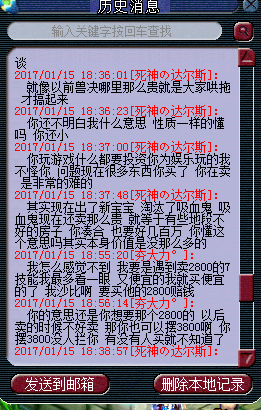 历史消息
输入关键字按回车查找
谈
2017/01/15 18:36:01[死神の达尔斯]:
就像以前兽决哪里那么贵就是大家哄拖
才搞起来
2017/01/15 18:36:23[死神の达尔斯]:
你还不明白我什么意思 性质一样的懂
吗 你还小
2017/01/15 18:37:00[死神の达尔斯]:
你玩游戏什么都要投资你为娱乐玩的我
不怪你 问题现在很多东西你买了 你在卖
是非常的难的
2017/01/15 18:37:48[死神の达尔斯]:
其实现在出了新宝宝 淘汰了吸血鬼 吸
血鬼现在还卖那么贵 就等于有些地段不
好的房子 你凑合 也要好几百万 你懂这
个意思吗其实本身价值是没那么多的
2017/01/15 18:55:20[夯大力°]:
我怎么感觉不到 我要是遇到卖2800的7
技能我最多看一眼 又便宜的我就买便宜
的了 我沙比啊 要买他的2800赔钱
2017/01/15 18:56:14[夯大力°]:
你的意思还是你想要那个2800的 以后
卖的时候不好卖 那你也可以摆3800啊 你
摆3800没人拦你 有没有人买就不知道了
2017/01/15 18:38:57[死神の达尔斯]:
发送到邮箱
删除本地记录